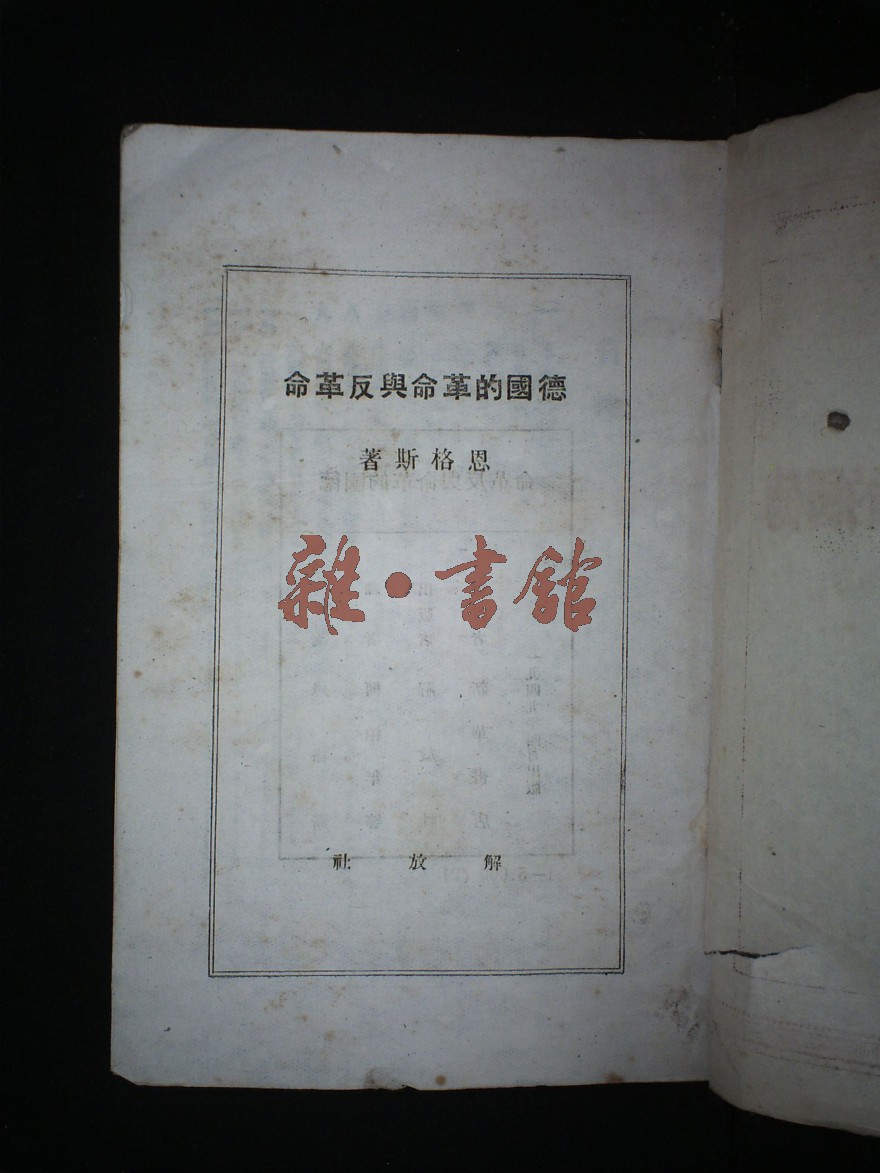 德國的革命與反革命
恩格斯著
雜·書館
解放社